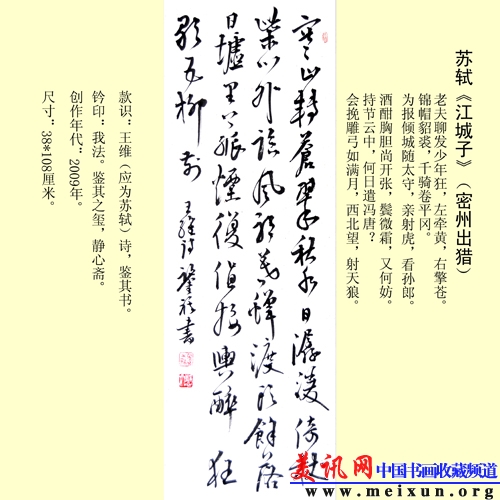 苏轼《江城子》（密州出猎）
老夫聊发少年狂，左牵黄，右擎苍。
锦帽貂裘，千骑卷平冈。
为报倾城随太守，亲射虎，看孙郎。
酒酣胸胆尚开张，鬓微霜，又何妨。
持节云中，何日遣冯唐？
会挽雕弓如满月，西北望，射天狼。
寒山转苍翠秋水日潺湲倚杖
柴门外临风听暮蝉渡头馀落
日墟里上孤烟复值接舆醉狂
歌五柳前
王维诗 鉴 书
款识：王维（应为苏轼）诗，鉴其书。
钤印：我法。鉴其之玺，静心斋。
创作年代：2009年。
尺寸：38*108厘米。
美讯网 中国书画收藏频道
www.meixun.org